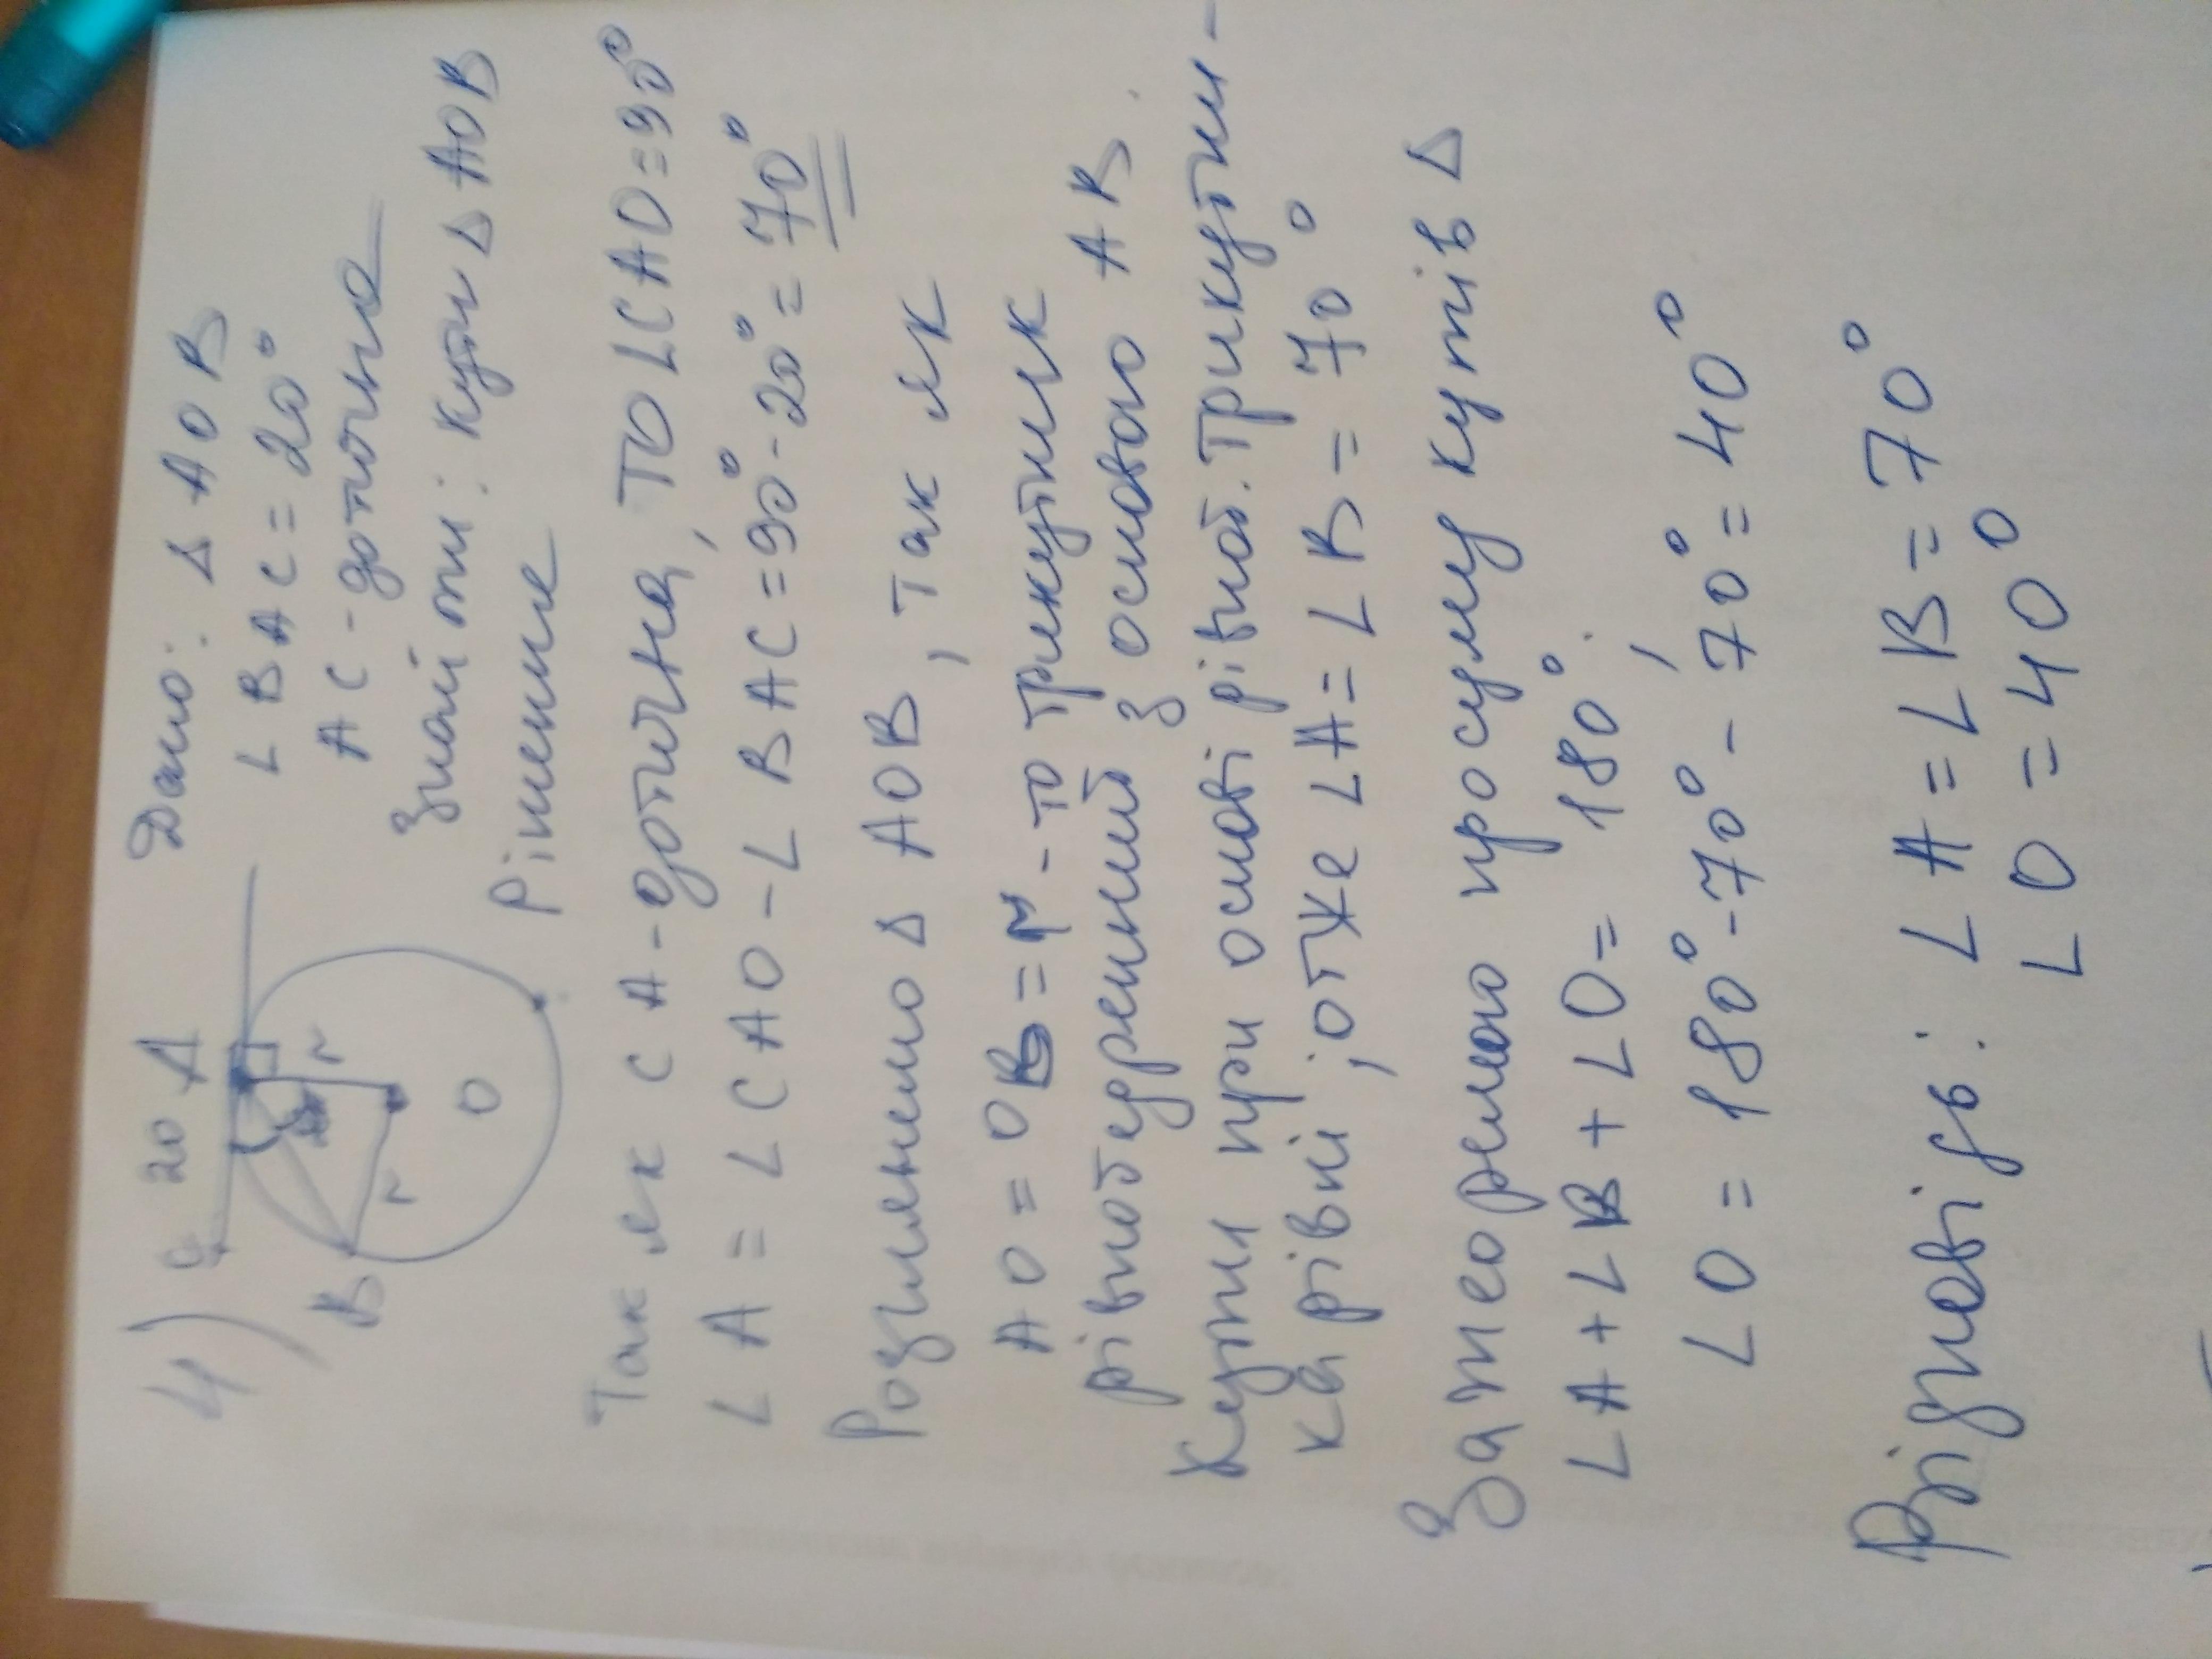 4)
C 20 A
B r r O
Дано: Δ AOB
∠ BAC = 20°
AC - дотична
Знайти: кути Δ AOB
Рішення
Так як CA - дотична, то ∠CAO = 90°
∠A = ∠CAO - ∠BAC = 90° - 20° = 70°
Розглянемо Δ AOB, так як
AO = OB = r - то трикутник
рівнобедренний з основою AB.
Кути при основі рівноб. трикутни-
ка рівні, отже ∠A = ∠B = 70°
За теоремою про суму кутів Δ
∠A + ∠B + ∠O = 180°.
∠O = 180° - 70° - 70° = 40°
Відповідь: ∠A = ∠B = 70°
∠O = 40°